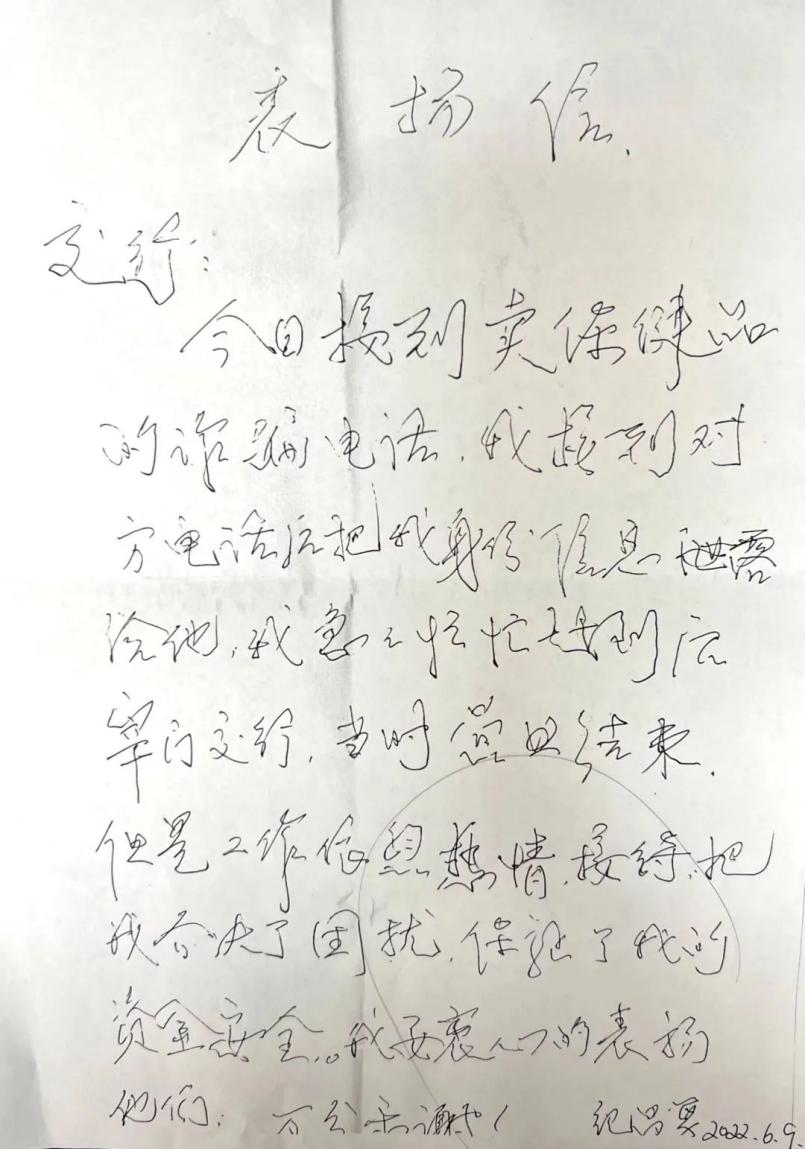 表扬信.
交行:
今日接到卖保健品
的诈骗电话,我接到对
方电话后把我身份信息泄露
给他,我急急忙忙赶到
门交行,当时营业结束.
但是工作依热情接待,把
我了困扰,保证了我的
资金安全。我要衷心的表扬
他们: 万分感谢!
2022.6.9.